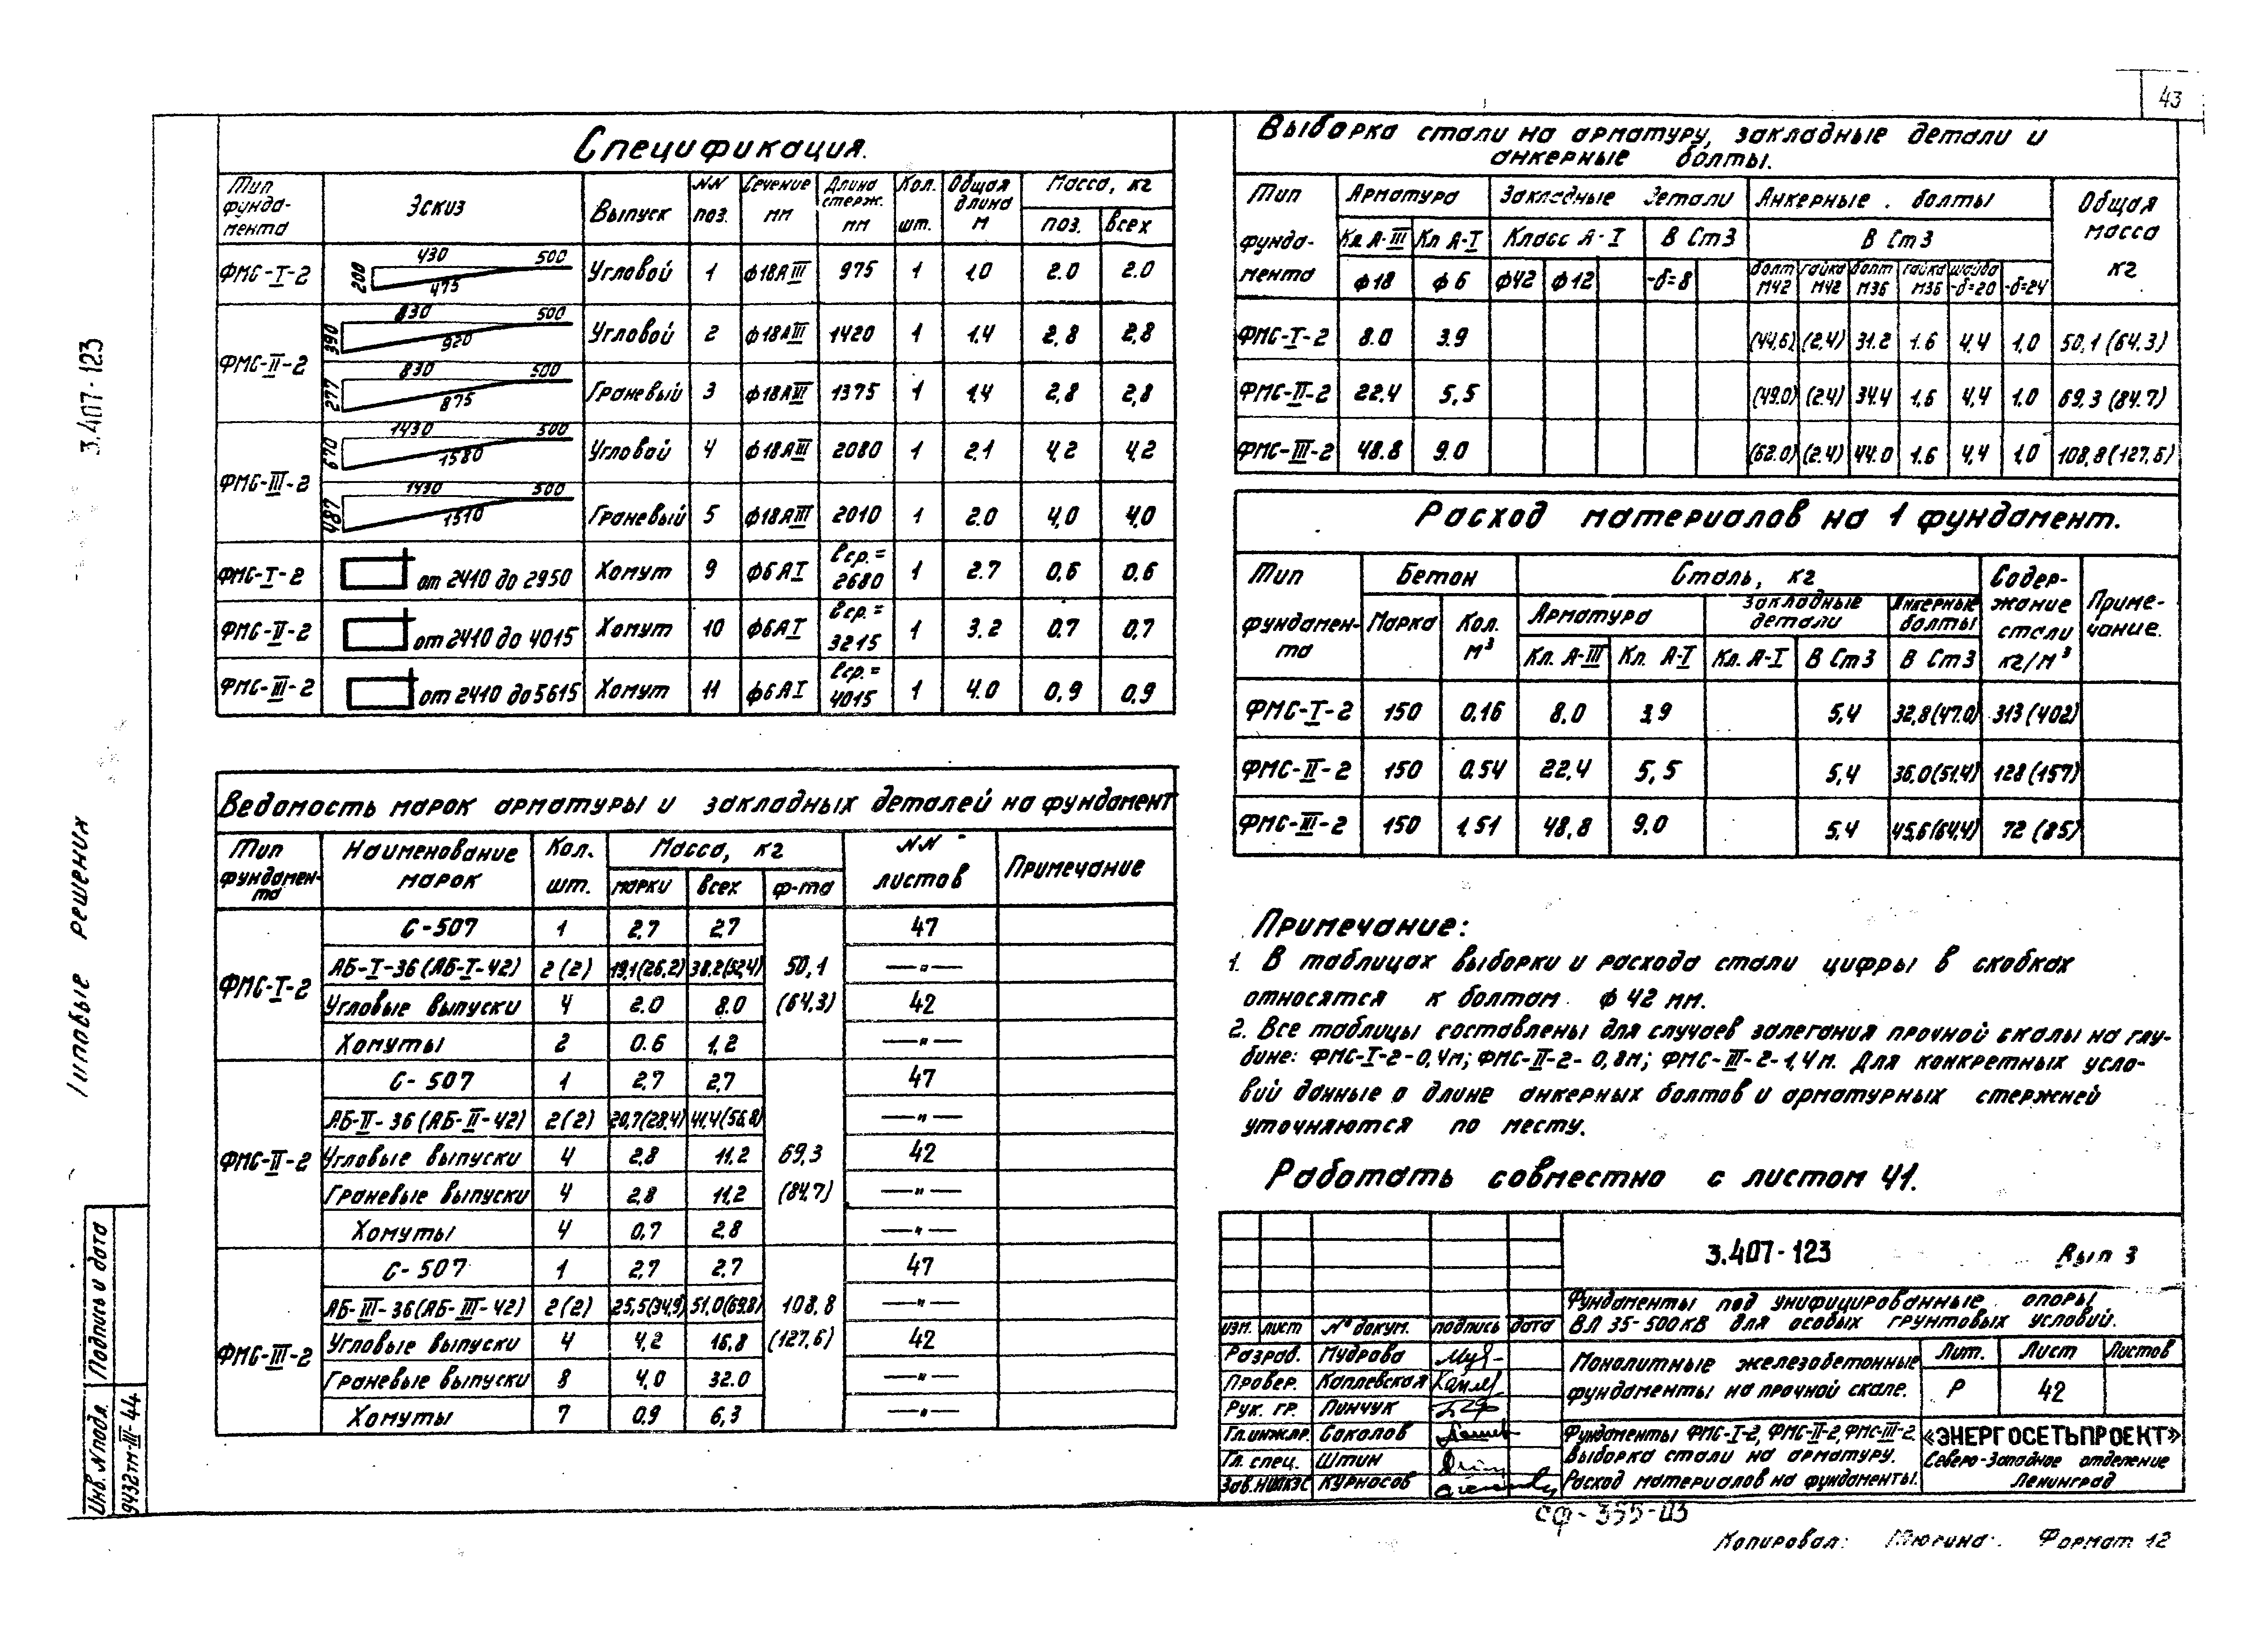 43
3.407-123
Типовые решения
Подпись и дата
Инв.Nподл.
9432тм-III-44
Спецификация.
Тип фунда-мента | Эскиз | Выпуск | NN поз. | Сечение мм | Длина стерж. мм | Кол. шт. | Общая длина м | Масса, кг поз. | всех
ФМС-I-2 | 200 430 500 475 | Угловой | 1 | ф18АIII | 975 | 1 | 1.0 | 2.0 | 2.0
ФМС-II-2 | 390 830 500 920 | Угловой | 2 | ф18АIII | 1420 | 1 | 1.4 | 2,8 | 2,8
277 830 500 875 | Граневый | 3 | ф18АIII | 1375 | 1 | 1,4 | 2,8 | 2,8
ФМС-III-2 | 670 1430 500 1580 | Угловой | 4 | ф18АIII | 2080 | 1 | 2.1 | 4,2 | 4,2
487 1430 500 1510 | Граневый | 5 | ф18АIII | 2010 | 1 | 2.0 | 4,0 | 4,0
ФМС-I-2 | от 2410 до 2950 | Хомут | 9 | ф6АI | lср.= 2680 | 1 | 2.7 | 0.6 | 0.6
ФМС-II-2 | от 2410 до 4015 | Хомут | 10 | ф6АI | lср.= 3215 | 1 | 3.2 | 0.7 | 0,7
ФМС-III-2 | от 2410 до 5615 | Хомут | 11 | ф6АI | lср.= 4015 | 1 | 4.0 | 0,9 | 0,9
Ведомость марок арматуры и закладных деталей на фундамент
Тип фундамен-та | Наименование марок | Кол. шт. | Масса, кг марки | всех | ф-та | NN листов | Примечание
ФМС-I-2 | С-507 | 1 | 2.7 | 2.7 | 50,1 (64,3) | 47
АБ-I-36 (АБ-I-42) | 2(2) | 19,1(26,2) | 38.2(52,4) | —"—
Угловые выпуски | 4 | 2.0 | 8.0 | 42
Хомуты | 2 | 0.6 | 1,2 | —"—
ФМС-II-2 | С-507 | 1 | 2,7 | 2,7 | 69,3 (84,7) | 47
АБ-II-36 (АБ-II-42) | 2(2) | 20,7(28,4) | 41,4(56,8) | —"—
Угловые выпуски | 4 | 2,8 | 11,2 | 42
Граневые выпуски | 4 | 2,8 | 11,2 | —"—
Хомуты | 4 | 0,7 | 2,8 | —"—
ФМС-III-2 | С-507 | 1 | 2,7 | 2,7 | 108,8 (127,6) | 47
АБ-III-36(АБ-III-42) | 2(2) | 25,5(34,9) | 51,0(69,8) | —"—
Угловые выпуски | 4 | 4,2 | 16,8 | 42
Граневые выпуски | 8 | 4,0 | 32.0 | —"—
Хомуты | 7 | 0,9 | 6,3 | —"—
Выборка стали на арматуру, закладные детали и
анкерные болты.
Тип фунда-мента | Арматура | Закладные детали | Анкерные болты | Общая масса кг
Кл А-III | Кл А-I | Класс А-I | В Ст3 | В Ст3
ф18 | ф6 | ф42 | ф12 | -δ=8 | болт М42 | гайка М42 | болт М36 | гайка М36 | шайба -δ=20 | -δ=24
ФМС-I-2 | 8.0 | 3.9 | (44,6) | (2,4) | 31.2 | 1.6 | 4,4 | 1,0 | 50,1 (64.3)
ФМС-II-2 | 22,4 | 5,5 | (49.0) | (2.4) | 34.4 | 1,6 | 4,4 | 1,0 | 69.3 (84.7)
ФМС-III-2 | 48.8 | 9.0 | (62.0) | (2.4) | 44.0 | 1.6 | 4,4 | 1,0 | 108,8(127,6)
Расход материалов на 1 фундамент.
Тип фундамен-та | Бетон | Сталь, кг | Содер-жание стали кг/м³ | Приме-чание.
Марка | Кол. м³ | Арматура | Закладные детали | Анкерные болты
Кл. А-III | Кл. А-I | Кл. А-I | В Ст3 | В Ст3
ФМС-I-2 | 150 | 0.16 | 8.0 | 3,9 | 5,4 | 32,8(47.0) | 313 (402)
ФМС-II-2 | 150 | 0.54 | 22,4 | 5,5 | 5,4 | 36.0(51.4) | 128 (157)
ФМС-III-2 | 150 | 1,51 | 48,8 | 9.0 | 5,4 | 45,6(64,4) | 72 (85)
Примечание:
1. В таблицах выборки и расхода стали цифры в скобках
относятся к болтам ф 42 мм.
2. Все таблицы составлены для случаев залегания прочной скалы на глу-
бине: ФМС-I-2-0,4м; ФМС-II-2-0,8м; ФМС-III-2-1,4м. Для конкретных усло-
вий данные о длине анкерных болтов и арматурных стержней
уточняются по месту.
Работать совместно с листом 41.
3.407-123 Вып 3
Фундаменты под унифицированные опоры
ВЛ 35-500кВ для особых грунтовых условий.
изм. лист № докум. подпись дата
Разраб. Мудрова
Провер. Каплевская
Рук. гр. Пинчук
Гл.инж.пр. Соколов
Гл. спец. Штин
Зав.НИЛКЭС Курносов
Монолитные железобетонные
фундаменты на прочной скале.
Лит. Лист Листов
Р 42
Фундаменты ФМС-I-2, ФМС-II-2, ФМС-III-2.
Выборка стали на арматуру.
Расход материалов на фундаменты.
«ЭНЕРГОСЕТЬПРОЕКТ»
Северо-Западное отделение
Ленинград
сф-355-03
Копировал: Формат 12